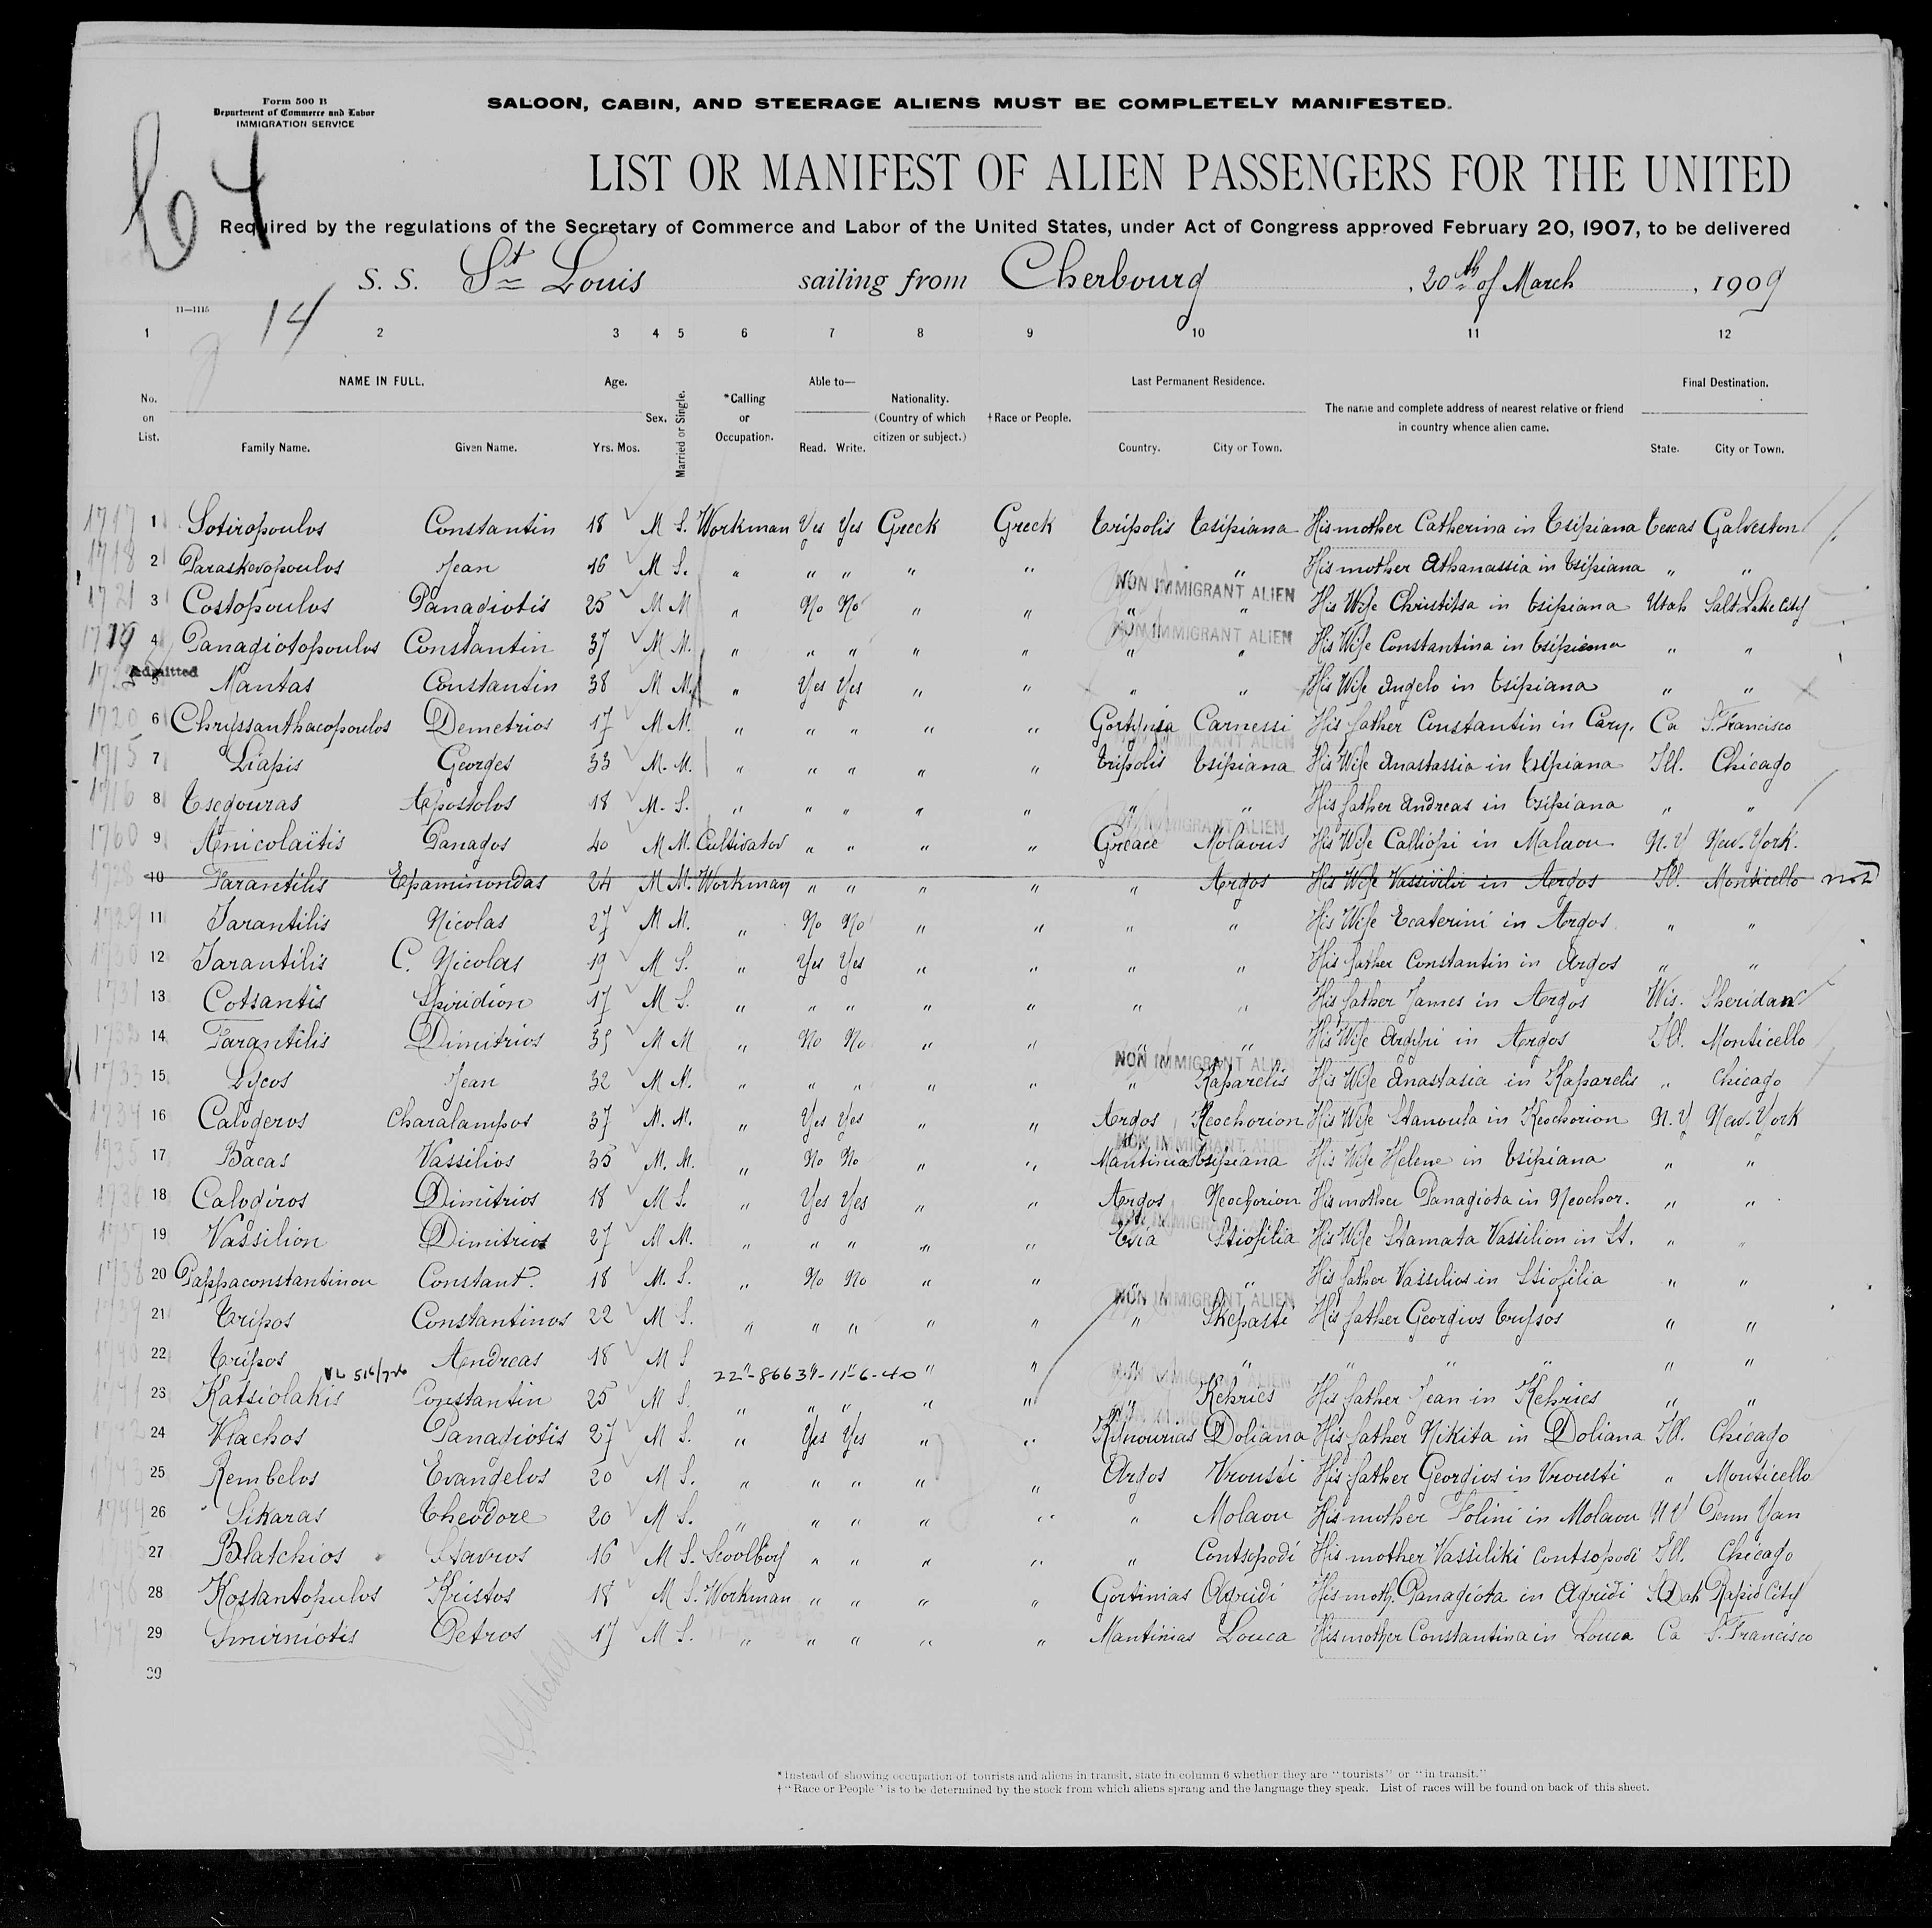 Form 500 B
Department of Commerce and Labor
IMMIGRATION SERVICE
64
SALOON, CABIN, AND STEERAGE ALIENS MUST BE COMPLETELY MANIFESTED.
LIST OR MANIFEST OF ALIEN PASSENGERS FOR THE UNITED
Required by the regulations of the Secretary of Commerce and Labor of the United States, under Act of Congress approved February 20, 1907, to be delivered
S. S. St Louis sailing from Cherbourg, 20th of March, 1909
11—1115
14
1 2 3 4 5 6 7 8 9 10 11 12
No. on List. NAME IN FULL. Family Name. Given Name. Age. Yrs. Mos. Sex. Married or Single. *Calling or Occupation. Able to— Read. Write. Nationality. (Country of which citizen or subject.) †Race or People. Last Permanent Residence. Country. City or Town. The name and complete address of nearest relative or friend in country whence alien came. Final Destination. State. City or Town.
1717 1 Sotiropoulos Constantin 18 M S. Workman Yes Yes Greek Greek Tripolis Tsipiana His mother Catherina in Tsipiana Texas Galveston
1718 2 Paraskevopoulos Jean 16 M S. " " " " " " " His mother Athanassia in Tsipiana " "
NON IMMIGRANT ALIEN
1721 3 Costopoulos Panagiotis 25 M M " No No " " " " His Wife Christitsa in Tsipiana Utah Salt Lake City
NON IMMIGRANT ALIEN
1719 4 Panagiotopoulos Constantin 37 M M. " " " " " " " His Wife Constantina in Tsipiana " "
Admitted
5 Mantas Constantin 38 M M. " Yes Yes " " " " His Wife Angelo in Tsipiana " "
1720 6 Chryssanthacopoulos Demetrios 17 M M. " " " " " Gortynia Carnessi His father Constantin in Cary. Ca S. Francisco
NON IMMIGRANT ALIEN
1715 7 Liapis Georges 33 M. M. " " " " " Tripolis Tsipiana His Wife Anastassia in Tsipiana Ill. Chicago
1716 8 Tsegouras Apostolos 18 M. S. " " " " " " " His father Andreas in Tsipiana " "
NON IMMIGRANT ALIEN
1760 9 Anicolaïtis Panagos 40 M M. Cultivator " " " " Greace Molaous His Wife Calliopi in Malaou N.Y New-York.
1728 10 Tarantilis Epaminondas 24 M M. Workman " " " " " Argos His Wife in Argos Ill. Monticello not
1729 11 Tarantilis Nicolas 27 M M. " No No " " " " His Wife Ecaterini in Argos " "
1730 12 Tarantilis C. Nicolas 19 M S. " Yes Yes " " " " His father Constantin in Argos " "
1731 13 Cotsantis Spiridion 17 M S. " " " " " " " His father James in Argos Wis. Sheridan
14 Tarantilis Dimitrios 35 M M " No No " " " " His Wife Argyri in Argos Ill. Monticello
NON IMMIGRANT ALIEN
1733 15 Lycos Jean 32 M M. " " " " " " Kaparelis His Wife Anastasia in Kaparelis " Chicago
1734 16 Calogeros Charalampos 37 M. M. " Yes Yes " " Argos Neochorion His Wife Stamoula in Neochorion N.Y New-York
NON IMMIGRANT ALIEN
1735 17 Bacas Vassilios 35 M. M. " No No " " Mantinias Tsipiana His Wife Helene in Tsipiana " "
1736 18 Calogiros Dimitrios 18 M S. " Yes Yes " " Argos Neochorion His mother Panagiota in Neochor. " "
NON IMMIGRANT ALIEN
1737 19 Vassilion Dimitrios 27 M M. " " " " " Stiofilia His Wife Stamata Vassilion in St. " "
1738 20 Pappaconstantinou Constant. 18 M. S. " No No " " " " His father Vassilios in Stiofilia " "
NON IMMIGRANT ALIEN
1739 21 Tripos Constantinos 22 M S. " " " " " " Skepasti His father Georgios Tripos " "
1740 22 Tripos Andreas 18 M S " " " " " " " " "
NON IMMIGRANT ALIEN
22-86637-11-6-40
1741 23 Katsiolakis Constantin 25 M S. " " " " " " Kehries His father Jean in Kehries " "
1742 24 Vlachos Panagiotis 27 M S. " Yes Yes " " Kinourias Doliana His father Nikita in Doliana Ill. Chicago
1743 25 Rembelos Evangelos 20 M S. " " " " " Argos Vrousti His father Georgios in Vrousti " Monticello
1744 26 Sikaras Theodore 20 M S. " " " " " " Molaou His mother Polini in Molaou N Y Penn Yan
1745 27 Blatchios Stavros 16 M S. Scoolboy " " " " " Contsopodi His mother Vassiliki Contsopodi Ill. Chicago
1746 28 Kostantopulos Kristos 18 M S. Workman " " " " Gortinias Agridi His moth. Panagiota in Agridi S Dak Rapid City
1747 29 Smirniotis Petros 17 M S. " " " " " Mantinias Louca His mother Constantina in Louca Ca S. Francisco
30
*Instead of showing occupation of tourists and aliens in transit, state in column 6 whether they are "tourists" or "in transit."
†"Race or People" is to be determined by the stock from which aliens sprang and the language they speak. List of races will be found on back of this sheet.